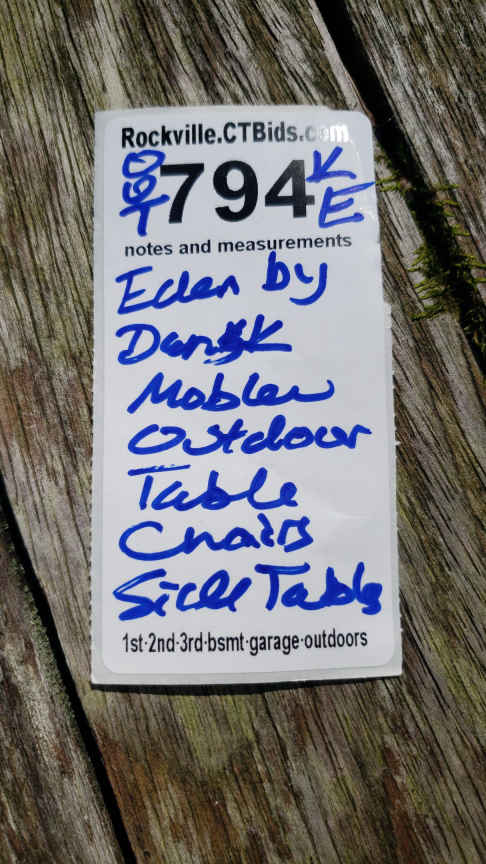 Rockville.CTBids.com
OUT 794 KE
notes and measurements
Eden by
Dansk
Mobler
Outdoor
Table
Chairs
Side Table
1st·2nd·3rd·bsmt·garage·outdoors